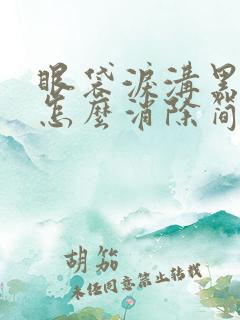 眼袋淚溝黑
怎麼消除簡
胡笳
未经同意禁止转载